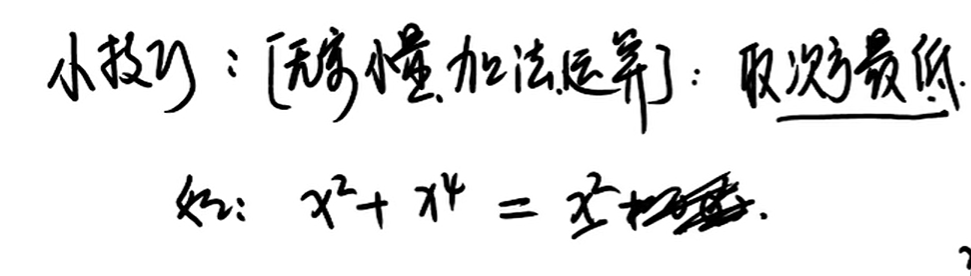 小技巧：[无穷小量加法运算]：取次方最低.
如：x²+x⁴=x²